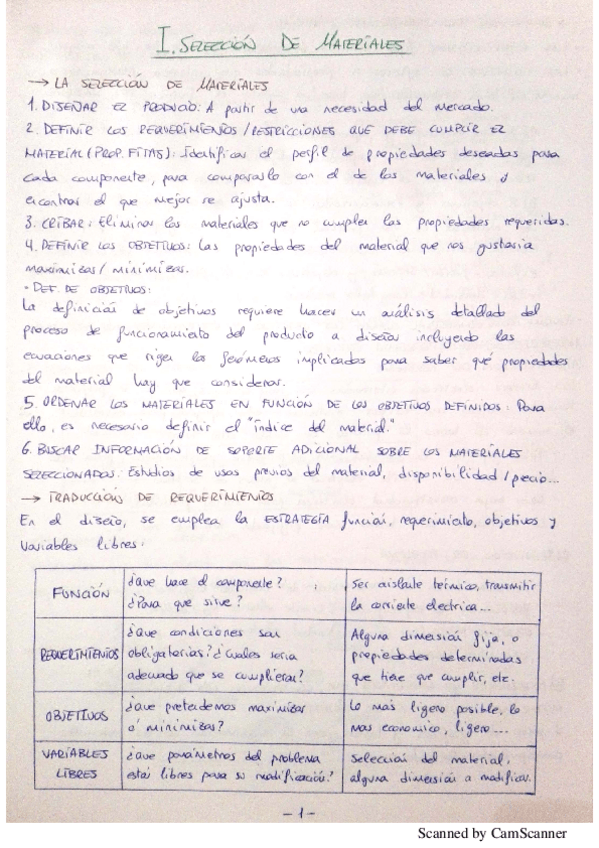 I. SELECCIÓN DE MATERIALES
→ LA SELECCIÓN DE MATERIALES
1. DISEÑAR EL PRODUCTO: A partir de una necesidad del mercado.
2. DEFINIR LOS REQUERIMIENTOS/RESTRICCIONES QUE DEBE CUMPLIR EL
MATERIAL (PROP. FIJAS): Identificar el perfil de propiedades deseadas para
cada componente, para compararlo con el de los materiales y
encontrar el que mejor se ajusta.
3. CRIBAR: Eliminar los materiales que no cumplen las propiedades requeridas.
4. DEFINIR LOS OBJETIVOS: Las propiedades del material que nos gustaría
maximizar/minimizar.
· DEF. DE OBJETIVOS:
La definición de objetivos requiere hacer un análisis detallado del
proceso de funcionamiento del producto a diseñar incluyendo las
ecuaciones que rigen los fenómenos implicados para saber qué propiedades
del material hay que considerar.
5. ORDENAR LOS MATERIALES EN FUNCIÓN DE LOS OBJETIVOS DEFINIDOS: Para
ello, es necesario definir el "índice del material."
6. BUSCAR INFORMACIÓN DE SOPORTE ADICIONAL SOBRE LOS MATERIALES
SELECCIONADOS: Estudios de usos previos del material, disponibilidad/precio...
→ TRADUCCIÓN DE REQUERIMIENTOS
En el diseño, se emplea la ESTRATEGIA función, requerimiento, objetivos y
variables libres:
FUNCIÓN
¿Que hace el componente?
¿Para que sirve?
Ser aislante térmico, transmitir
la corriente electrica...
REQUERIMIENTOS
¿Que condiciones son
obligatorias? ¿Cuales seria
adecuado que se cumplieran?
Alguna dimensión fija, o
propiedades determinadas
que tiene que cumplir, etc.
OBJETIVOS
¿Que pretendemos maximizar
o minimizar?
Lo más ligero posible, lo
mas economico, ligero...
VARIABLES
LIBRES
¿Que parámetros del problema
están libres para su modificación?
Selección del material,
alguna dimensión a modificar.
- 1 -
Scanned by CamScanner